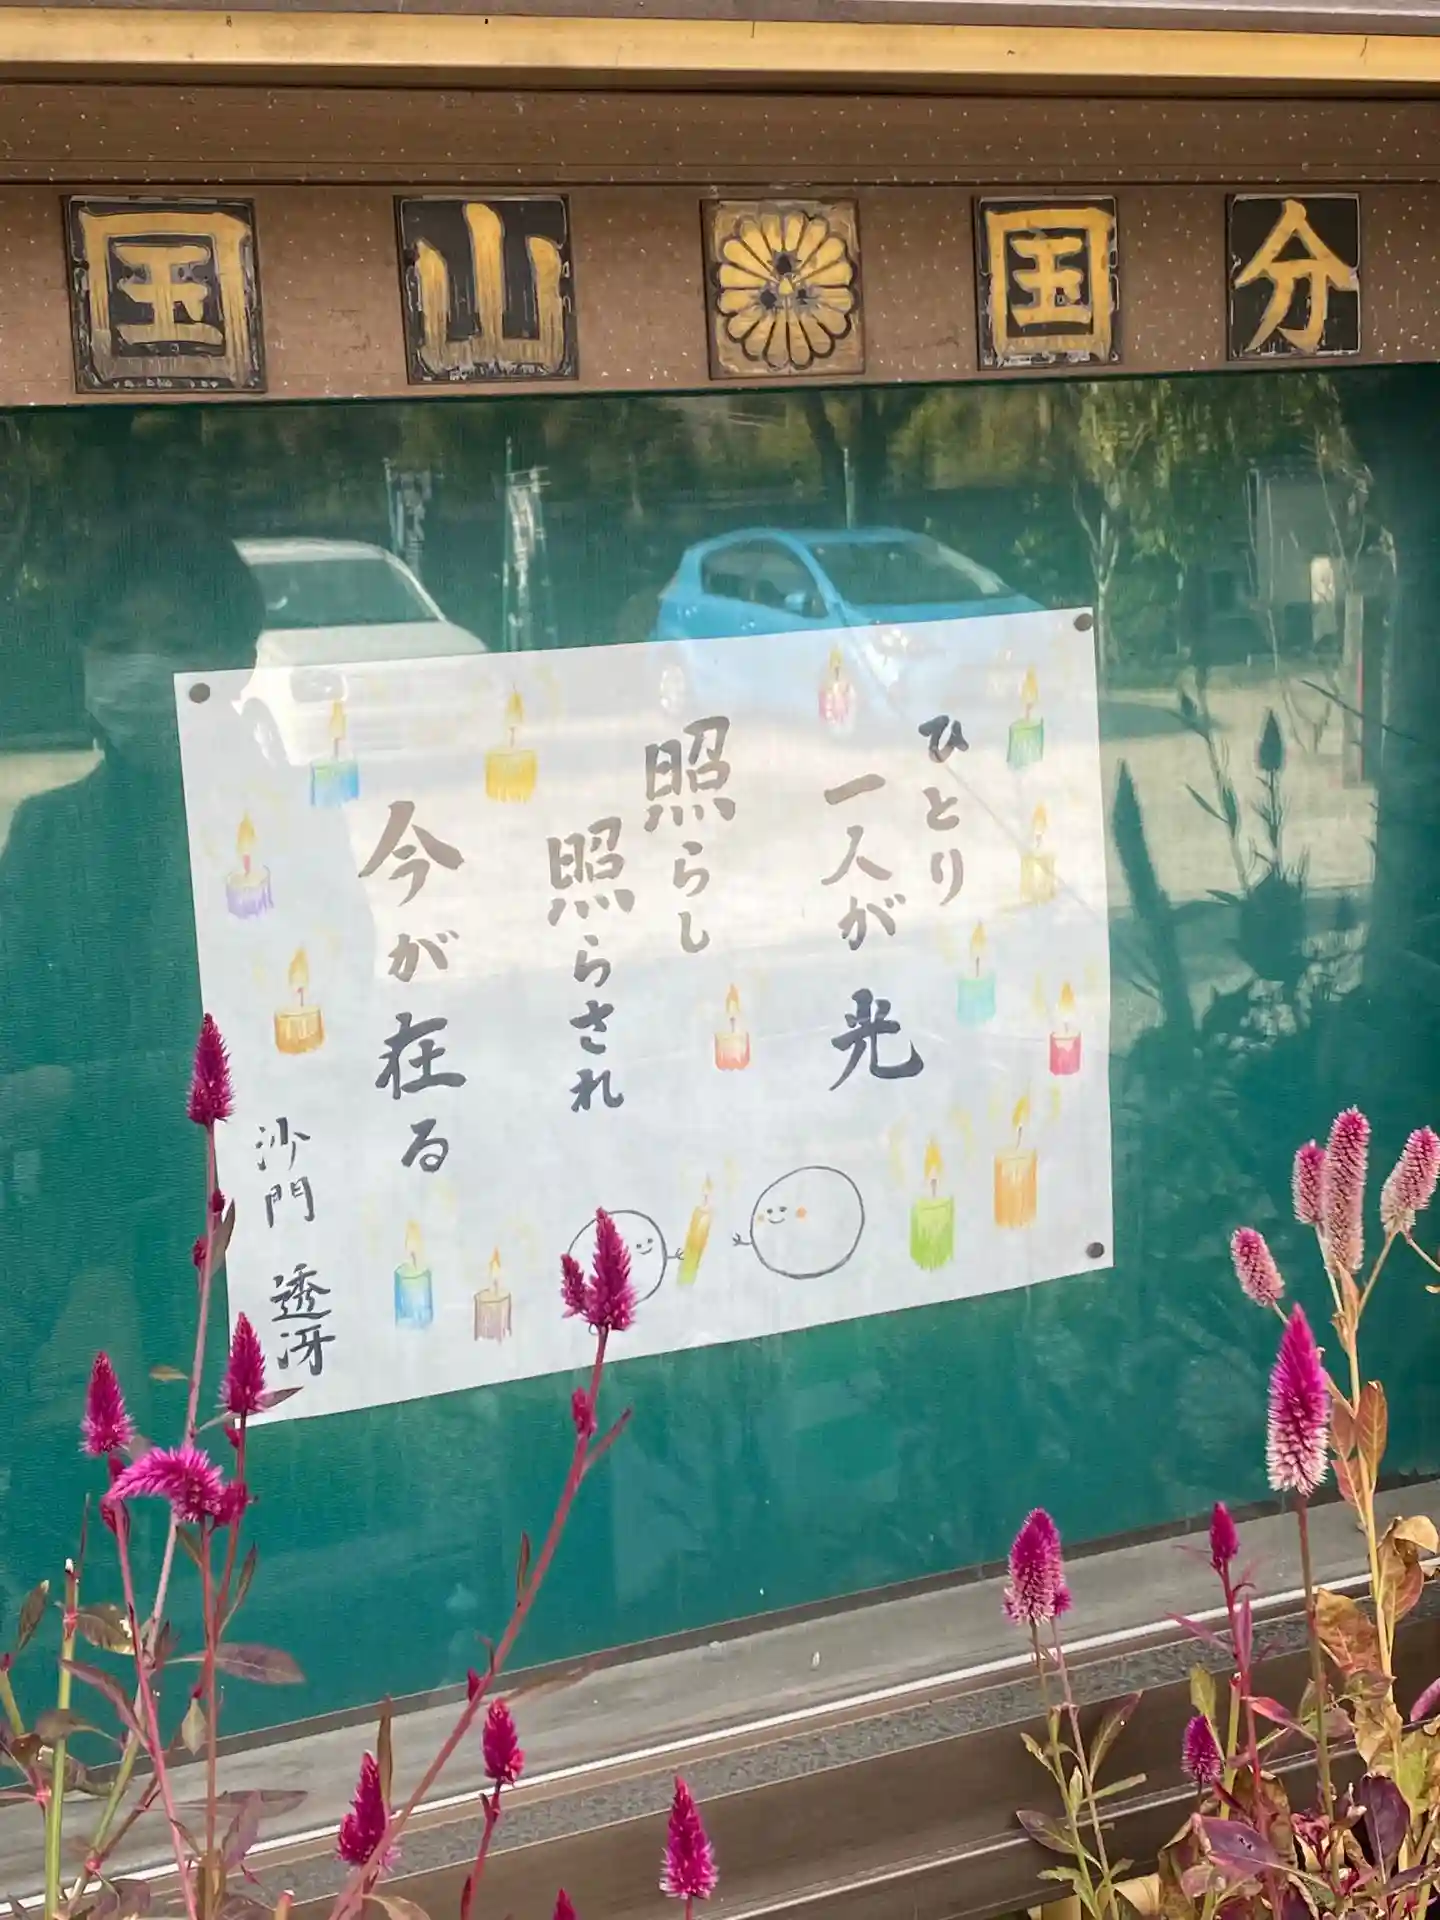 国山 国分
ひとり
一人が光
照らし
照らされ
今が在る
沙門 透冴